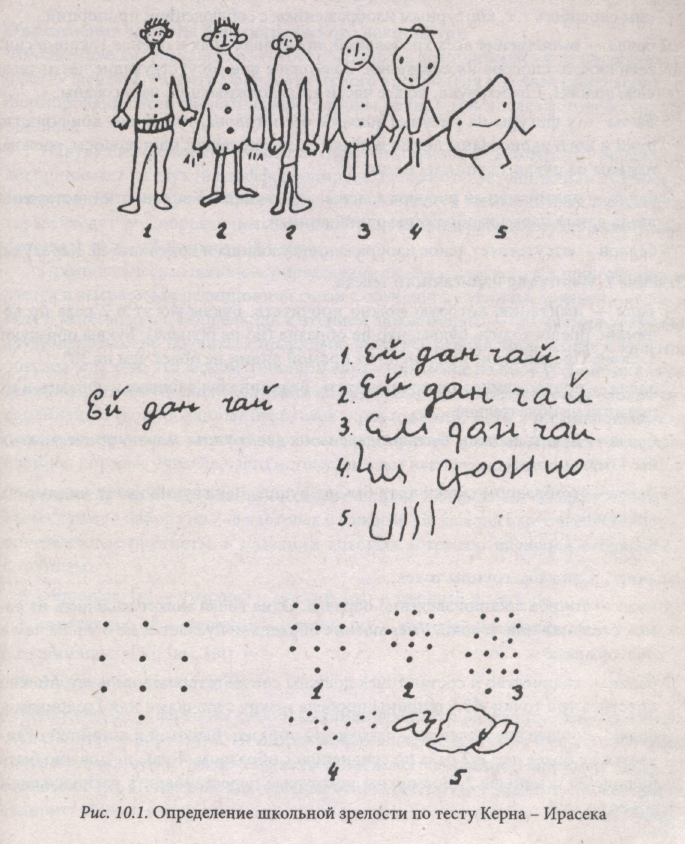 1 2 2 3 4 5
1. Ей дан чай
Ей дан чай
2. Ей дан чай
3. Ей дан чай
4.
5.
1 2 3
4 5
Рис. 10.1. Определение школьной зрелости по тесту Керна – Ирасека